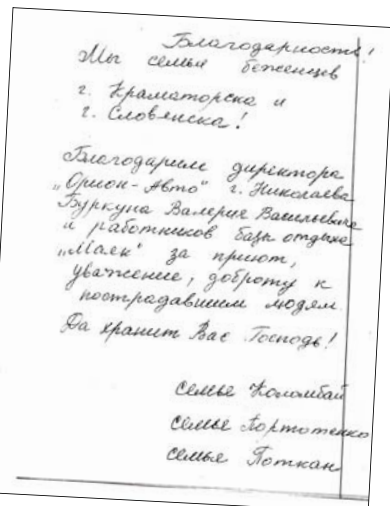 Благодарность!
Мы семьи беженцев
г. Краматорска и
г. Словянска!
Благодарим директора
„Орион-Авто" г. Николаева
Буркуна Валерия Васильевича
и работников базы отдыха
„Маяк" за приют,
уважение, доброту к
пострадавшим людям.
Да хранит Вас Господь!
семье Коломбай
семье
семья Поткан